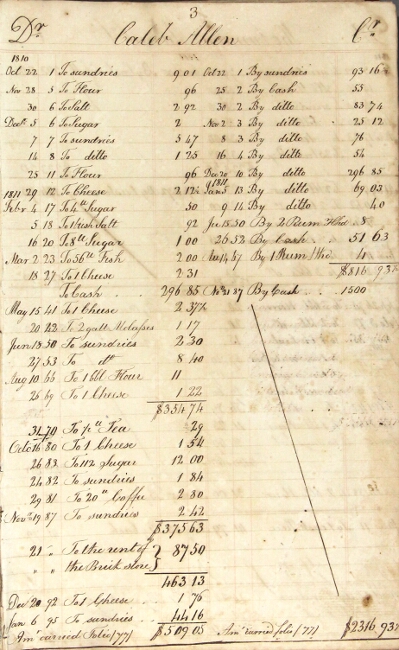 3
Dr Caleb Allen Cr
1810
Oct 22 1 To sundries 9 01 Oct 22 1 By sundries 93 16
Nov 28 5 To Flour 96 25 2 By Cash 55
30 6 To Salt 2 92 30 2 By ditto 83 74
Decr 5 6 To Sugar 2 Nov 2 3 By ditto 25 12
7 7 To sundries 5 47 8 3 By ditto 76
14 8 To ditto 1 25 16 4 By ditto 54
25 11 To Flour 96 Dec 20 10 By ditto 296 85
1811 29 12 To Cheese 2 12½ 1811 Jan 5 13 By ditto 69 03
Febr 4 17 To 4lb Sugar 50 9 14 By ditto 40
5 18 To Salt 92 Jun 18 50 By 2 Rum Hhd 8
16 20 To 8lb Sugar 1 00 26 52 By Cash 51 63
Mar 2 23 To 56lb Fish 2 00 Aug 14 67 By 1 Rum Hhd 4
18 27 To 1 Cheese 2 31 $816 93½
To Cash 296 85 Nov 21 87 By Cash 1500
May 15 41 To 1 Cheese 2 37½
20 22 To 2 gall Molasses 1 17
Jun 18 50 To sundries 2 30
27 53 To do 8 40
Aug 10 66 To 1 bbl Flour 11
26 69 To 1 Cheese 1 22
$354 74
31 70 To Tea 29
Octo 16 80 To 1 Cheese 1 54
26 83 To 112 Sugar 12 00
24 82 To sundries 1 84
29 81 To 20lb Coffee 2 80
Novr 19 87 To sundries 2 42
$375 63
21 " To the rent of } 87 50
" " the Brick store
463 13
Dec 20 92 To 1 Cheese 1 76
Jan 6 95 To sundries 44 16
Amt carried folio (77) $509 05 Amt carried folio (77) $2316 93½